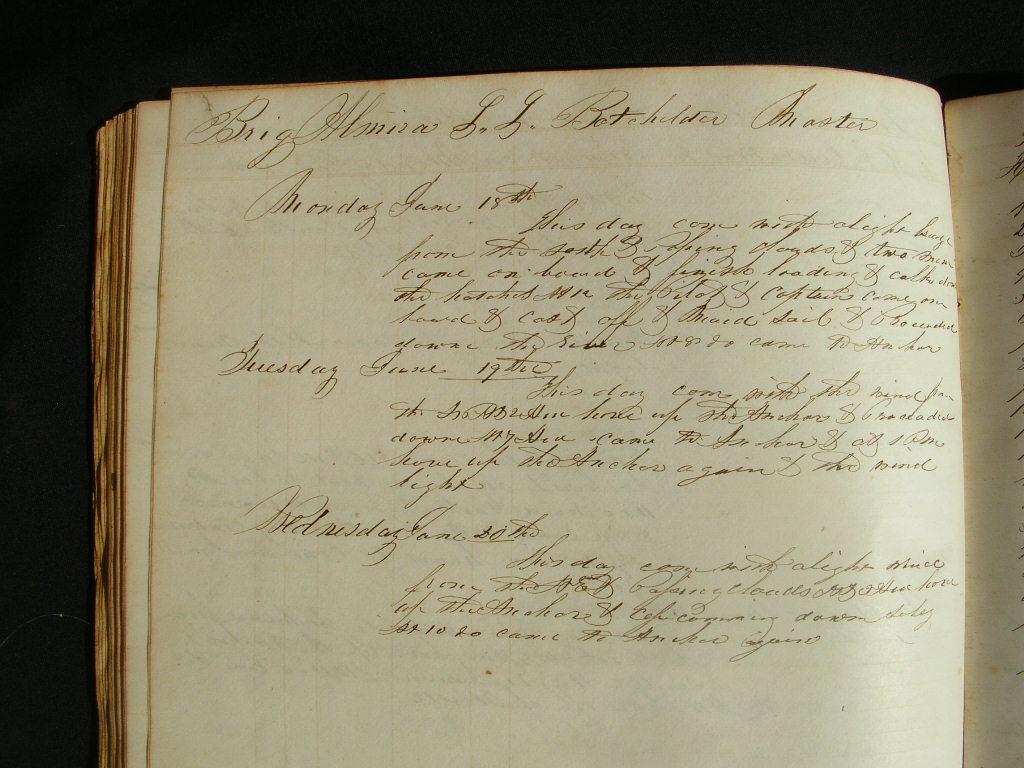 Brig Almira S. S. Batchelder Master
Monday June 18th
This day com with a light
from the South & Passing Clouds & two men
came on board & finish loading & calk down
the hatches At 12 the Pilot & Captain came on
board & cast off & Maid Sail & Proceeded
downe the River At 8 do came to Anchor
Tuesday June 19th
This day com with the wind from
the At 2 Am hove up the Anchor & Proceeded
down At 7 Am came to Anchor & at 1 Pm
hove up the Anchor again & the wind
light
Wednesday June 20th
This day com with a light wind
from the & Passing Clouds At 2 Am hove
up the Anchor & down
At 10 do came to Anchor again